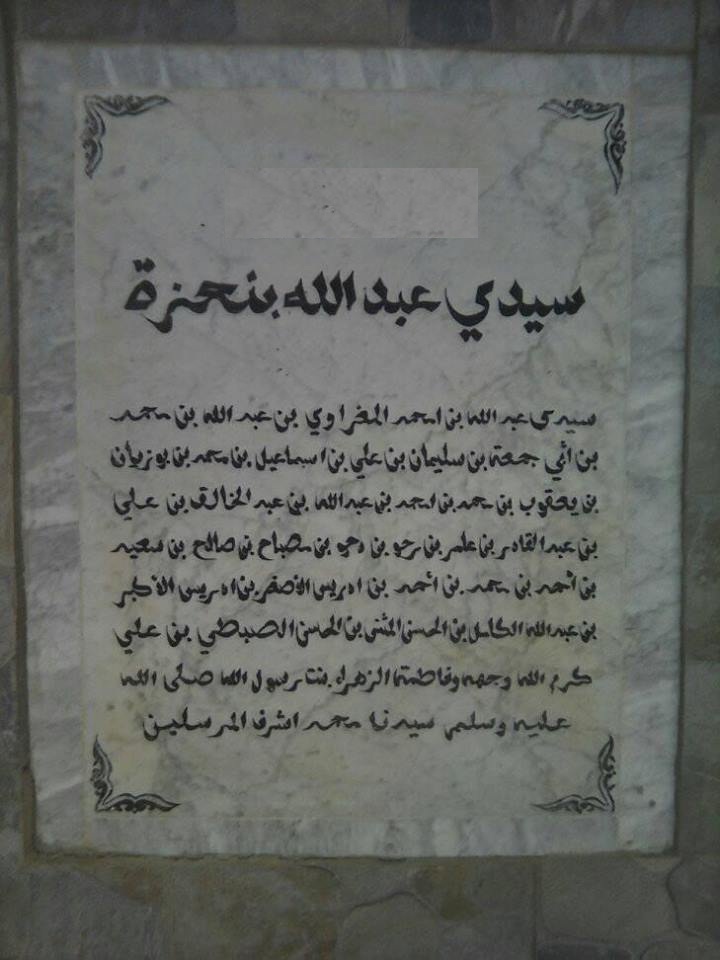 سيدي عبد الله بنحمزة
سيدي عبد الله بن امحمد المغراوي بن عبد الله بن محمد
بن ابي جمعة بن سليمان بن علي بن اسماعيل بن محمد بن بوزيان
بن يعقوب بن محمد بن احمد بن عبد الله بن عبد الخالق بن علي
بن عبد القادر بن عامر بن رحو بن دحو بن مصباح بن صالح بن سعيد
بن أحمد بن محمد بن أحمد بن ادريس الأصغر بن ادريس الأكبر
بن عبد الله الكامل بن الحسن المثنى بن الحسن الصبطي بن علي
كرم الله وجهه وفاطمة الزهراء بنت رسول الله صلى الله
عليه وسلم سيدنا محمد اشرف المرسلين